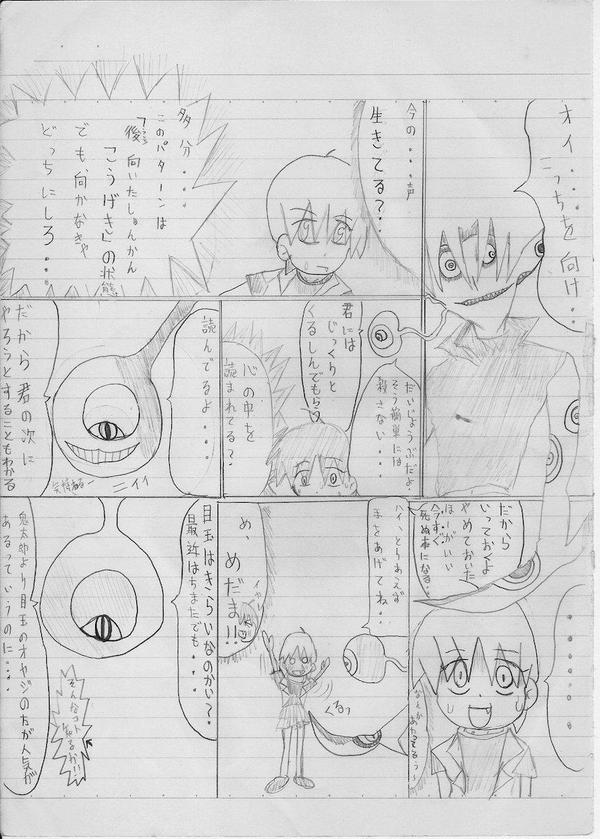 オイ....
こっちを向け...
今の...声
生きてる?...
多分....
このパターンは
「後ろ向いたしゅんかん
こうげき」の状態
でも、向かなきゃ
どっちにしろ...
だいじょうぶだよ
そう簡単には
殺さない....
君には
じっくりと
くるしんでもらう
心の中を
読まれてる?
読んでるよ....
ニイイ
だから君の次に
やろうとすることもわかる
だから
いっておくよ
やめておいた
ほーがいい
今すぐ
死ぬ事になる...
ハイ、とりあえず
手をあげてね...
くるっ
め、めだま!!
イヤ
目玉はきらいなのかい?
最近はちまたでも...
鬼太郎より目玉のオヤジのたが人気が
あるっていうのに....
そんなコト
知るかい!